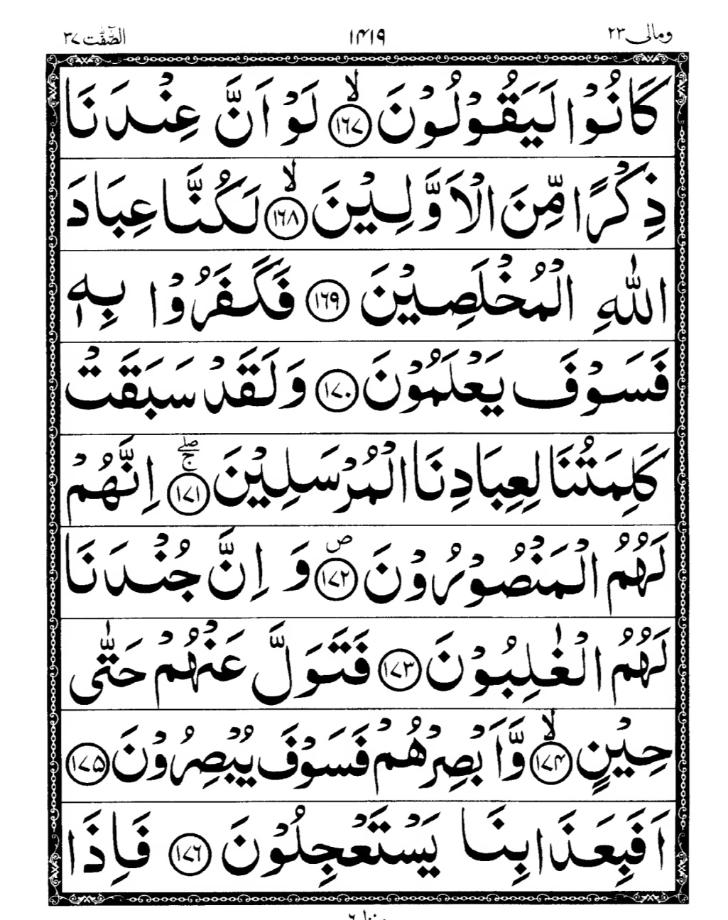 ومالی ٢٣ ١٤١٩ الصّٰٓفّٰت ٣٧
كَانُوْا لَيَقُوْلُوْنَ ۙ‏﴿١٦٧﴾ لَوْ اَنَّ عِنْدَنَا
ذِكْرًا مِّنَ الْاَوَّلِيْنَ ۙ‏﴿١٦٨﴾ لَكُنَّا عِبَادَ
اللّٰهِ الْمُخْلَصِيْنَ ﴿١٦٩﴾ فَكَفَرُوْا بِهٖ
فَسَوْفَ يَعْلَمُوْنَ ﴿١٧٠﴾ وَلَقَدْ سَبَقَتْ
كَلِمَتُنَا لِعِبَادِنَا الْمُرْسَلِيْنَ ۚۖ ﴿١٧١﴾ اِنَّهُمْ
لَهُمُ الْمَنْصُوْرُوْنَ ص ﴿١٧٢﴾ وَ اِنَّ جُنْدَنَا
لَهُمُ الْغٰلِبُوْنَ ﴿١٧٣﴾ فَتَوَلَّ عَنْهُمْ حَتّٰى
حِيْنٍ ۙ‏﴿١٧٤﴾ وَّ اَبْصِرْهُمْ فَسَوْفَ يُبْصِرُوْنَ ﴿١٧٥﴾
اَفَبِعَذَابِنَا يَسْتَعْجِلُوْنَ ﴿١٧٦﴾ فَاِذَا